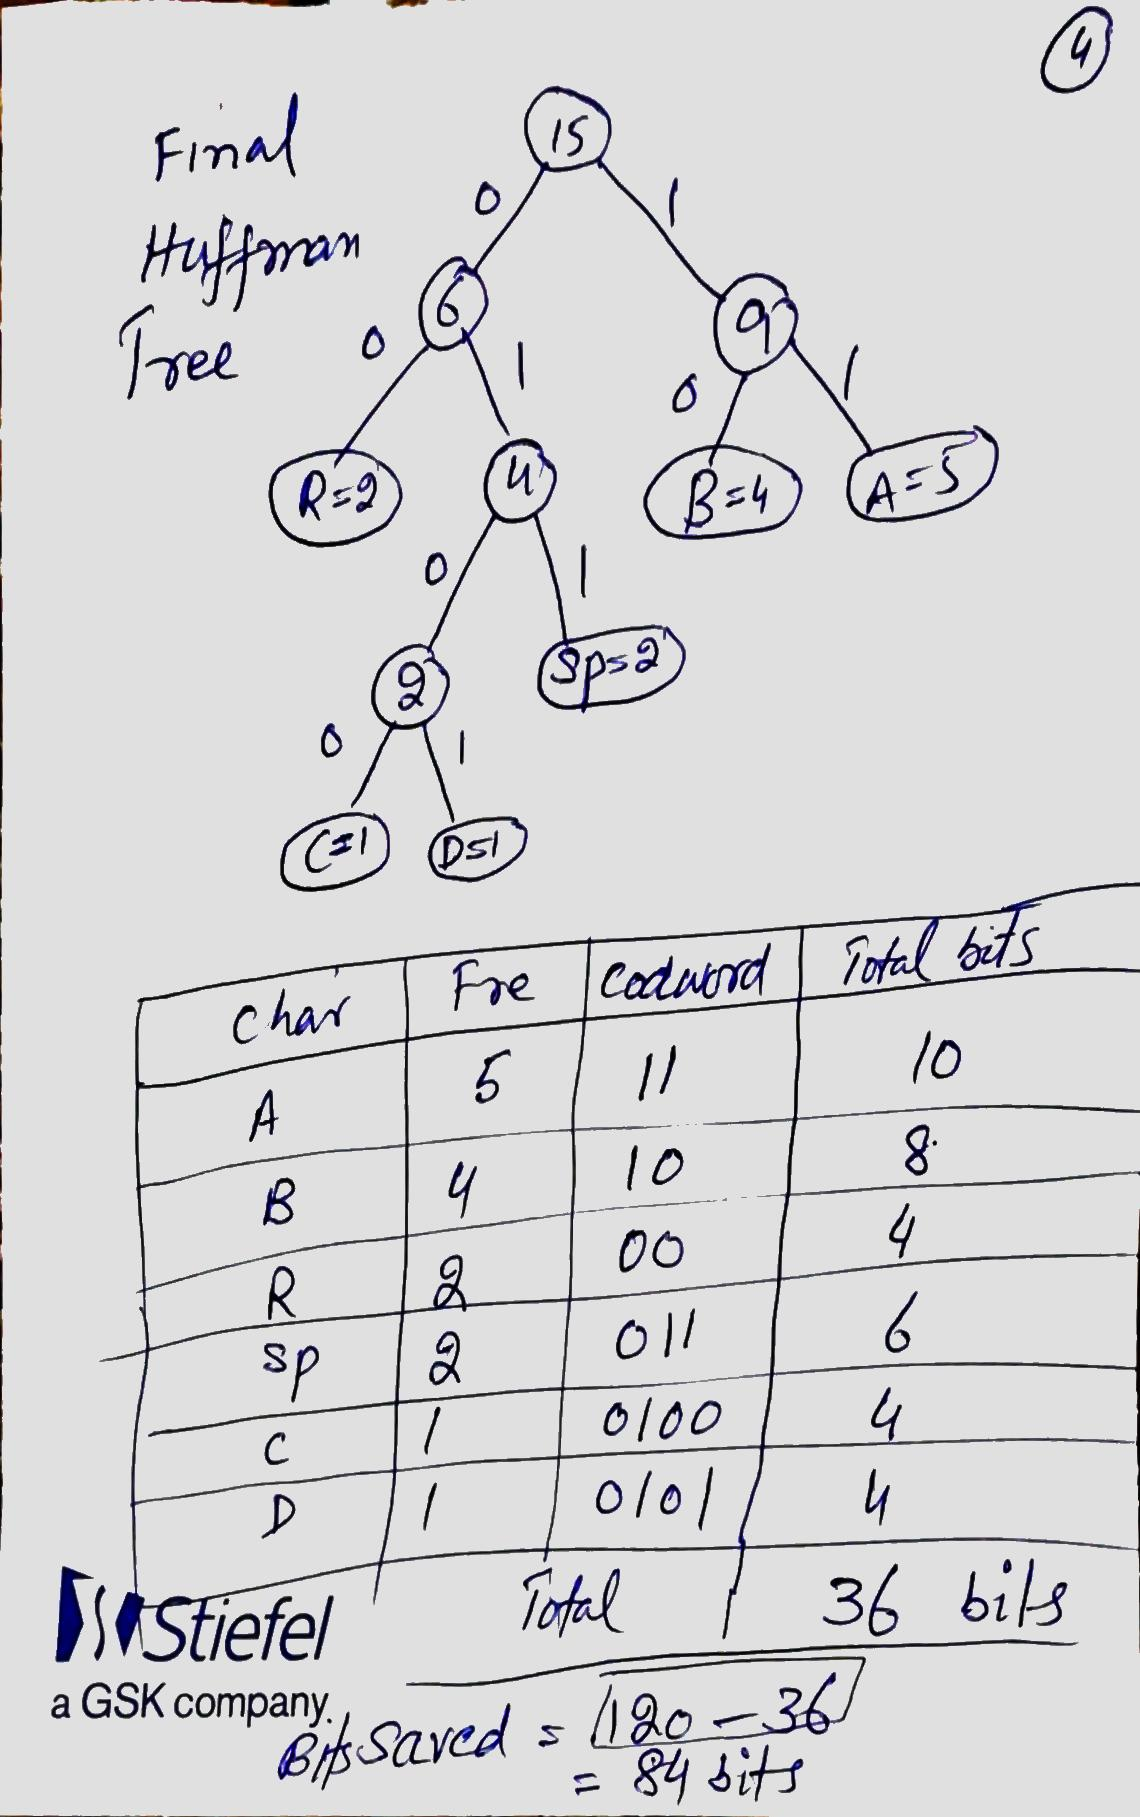 4
Final
Huffman
Tree
15
0 1
6 9
0 1 0 1
R=2 4 B=4 A=5
0 1
2 Sp=2
0 1
C=1 D=1
Char Fre Codword Total bits
A 5 11 10
B 4 10 8
R 2 00 4
Sp 2 011 6
C 1 0100 4
D 1 0101 4
Total 36 bits
Stiefel
a GSK company.
Bits Saved = 120 - 36
= 84 bits